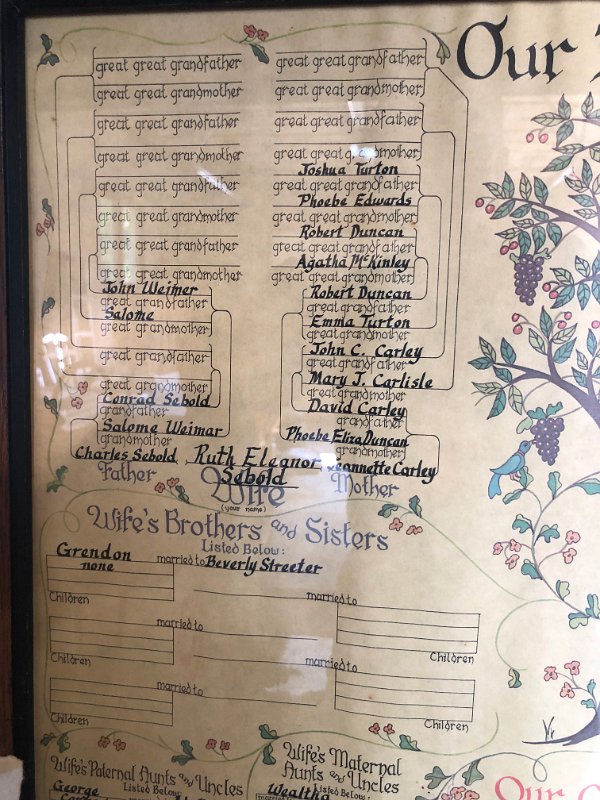 Our
great great grandfather
great great grandmother
great great grandfather
great great grandmother
great great grandfather
great great grandmother
great great grandfather
great great grandmother
John Weimer
great grandfather
Salome
great grandmother
great grandfather
great grandmother
Conrad Sebold
grandfather
Salome Weimar
grandmother
Charles Sebold
Father
great great grandfather
great great grandmother
great great grandfather
great great grandmother
Joshua Turton
great great grandfather
Phoebe Edwards
great great grandmother
Robert Duncan
great great grandfather
Agatha McKinley
great great grandmother
Robert Duncan
great grandfather
Emma Turton
great grandmother
John C. Carley
great grandfather
Mary J. Carlisle
great grandmother
David Carley
grandfather
Phoebe Eliza Duncan
grandmother
Jeannette Carley
Mother
Ruth Eleanor
Sebold
Wife
(your name)
Wife's Brothers and Sisters
Listed Below:
Grendon married to Beverly Streeter
none
Children
married to
Children
married to
Children
married to
Children
married to
Children
Wife's Paternal Aunts and Uncles
Listed Below:
George
Wife's Maternal
Aunts and Uncles
Listed Below:
Wealtha
Our